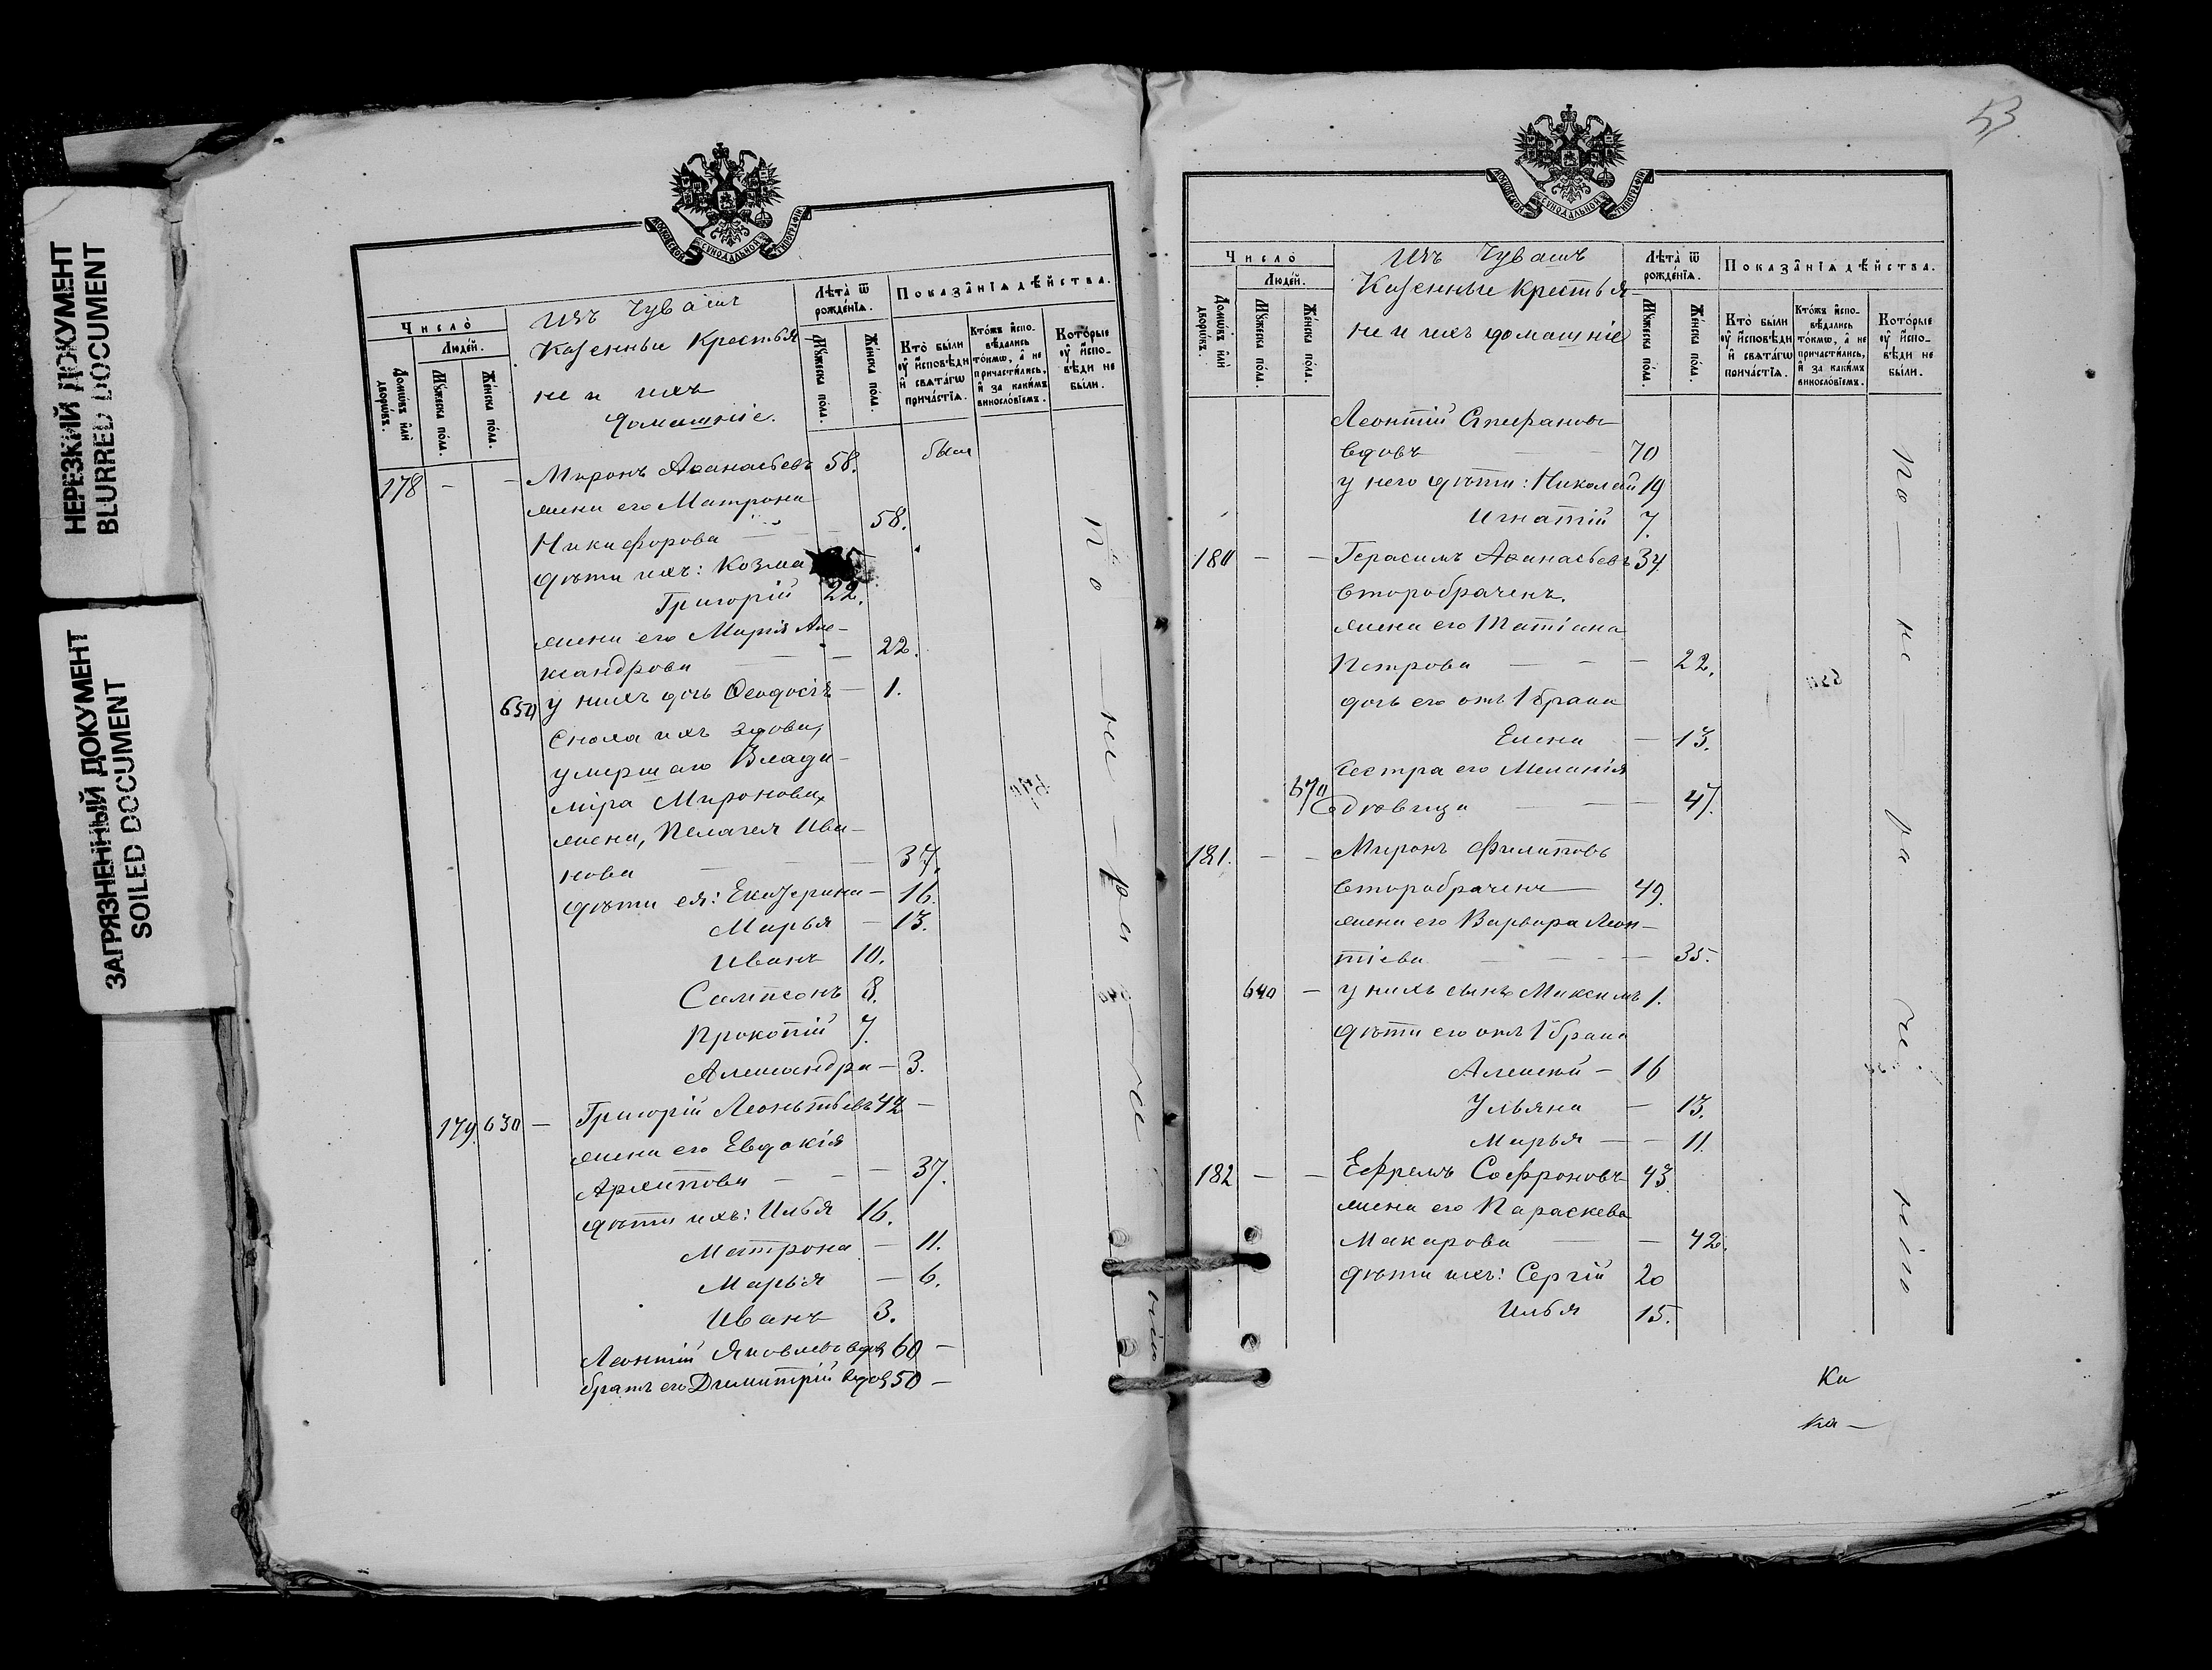 НЕРЕЗКИЙ ДОКУМЕНТ
BLURRED DOCUMENT
ЗАГРЯЗНЕННЫЙ ДОКУМЕНТ
SOILED DOCUMENT
МОСКОВСКОЙ СѴНОДАЛЬНОЙ ТИПОГРАФІИ
Число̀
Людей.
Домѡвъ и҆лѝ дворѡвъ.
Мꙋ́жеска по́ла.
Же́нска по́ла.
Изъ Чувашъ
Казенные Крестья-
не и ихъ
домашніе.
Лѣта̀ ѿ рожде́нїѧ.
Мꙋ́жеска по́ла.
Же́нска по́ла.
Показа̑нїѧ дѣ́йства.
Кто̀ бы́ли ᲂу҆ и҆сповѣ́ди и҆ свѧта́гѡ прича́стїѧ.
Кто́жъ и҆спо-
вѣ́дались то́кмѡ, а҆ не причасти́лись, и҆ за каки́мъ виносло́вїемъ.
Кото́рые ᲂу҆ и҆спо-
вѣ́ди не бы́ли.
178 — — Миронъ Аѳанасьевъ 58. были
жена его Матрона
Никифорова — — 58.
дѣти ихъ: Козма
Григорій 22.
жена его Марія Але-
ксандрова — — 22.
650 у нихъ дочь Ѳеодосія — 1.
Сноха ихъ вдова,
умершаго Влади-
міра Миронова,
жена, Пелагея Ива-
нова — — 37.
дѣти ея: Екатерина — 16.
Марья — 13.
Иванъ 10.
Сампсонъ 8.
Прокопій 7.
Александра — 3.
179. 630 — Григорій Леонтьевъ 42 —
жена его Евдокія
Архипова — — 37.
дѣти ихъ: Илья 16.
Матрона — 11.
Марья — 6.
Иванъ 3.
Леонтій Яковлевъ вдов 60 —
братъ его Димитрій вдов 50 —
по — не — ра — че — нію
53
МОСКОВСКОЙ СѴНОДАЛЬНОЙ ТИПОГРАФІИ
Число̀
Людей.
Домѡвъ и҆лѝ дворѡвъ.
Мꙋ́жеска по́ла.
Же́нска по́ла.
Изъ Чувашъ
Казенные крестья-
не и ихъ домашніе
Лѣта̀ ѿ рожде́нїѧ.
Мꙋ́жеска по́ла.
Же́нска по́ла.
Показа̑нїѧ дѣ́йства.
Кто̀ бы́ли ᲂу҆ и҆сповѣ́ди и҆ свѧта́гѡ прича́стїѧ.
Кто́жъ и҆спо-
вѣ́дались то́кмѡ, а҆ не причасти́лись, и҆ за каки́мъ виносло́вїемъ.
Кото́рые ᲂу҆ и҆спо-
вѣ́ди не бы́ли.
Леонтій Епифановъ
вдовъ — 70
у него дѣти: Николай 19
Игнатій 7.
180 — — Герасимъ Аѳанасьевъ 34
второбраченъ.
жена его Татіана
Петрова — — — 22.
дочь его отъ 1 брака
Елена — 13.
Сестра его Меланія
670 дѣвица — — — 47.
181. — — Миронъ Филиповъ
второбраченъ — 49.
жена его Варвара Леон-
тіева — — — 35.
640 — у нихъ сынъ Максимъ 1.
дѣти его отъ 1 брака
Алексѣй — 16
Ульяна — 13.
Марья — — 11.
182 — — Ефремъ Софроновъ 43.
жена его Параскева
Макарова — — 42.
дѣти ихъ: Сергій 20
Илья 15.
по — не — ра — че — нію
Ка
ка —